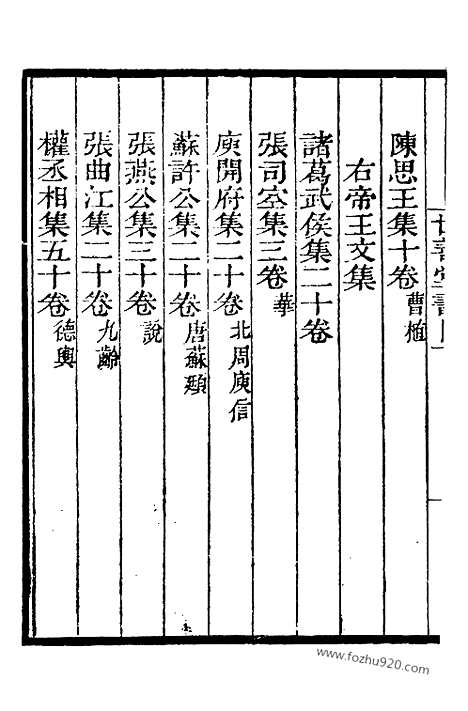 陳思王集十卷曹植
右帝王文集
諸葛武侯集二十卷
張司空集三卷華
庾開府集二十卷北周庾信
蘇許公集二十卷唐蘇頲
張燕公集三十卷說
張曲江集二十卷九齡
權丞相集五十卷德輿
www.fozhu920.com